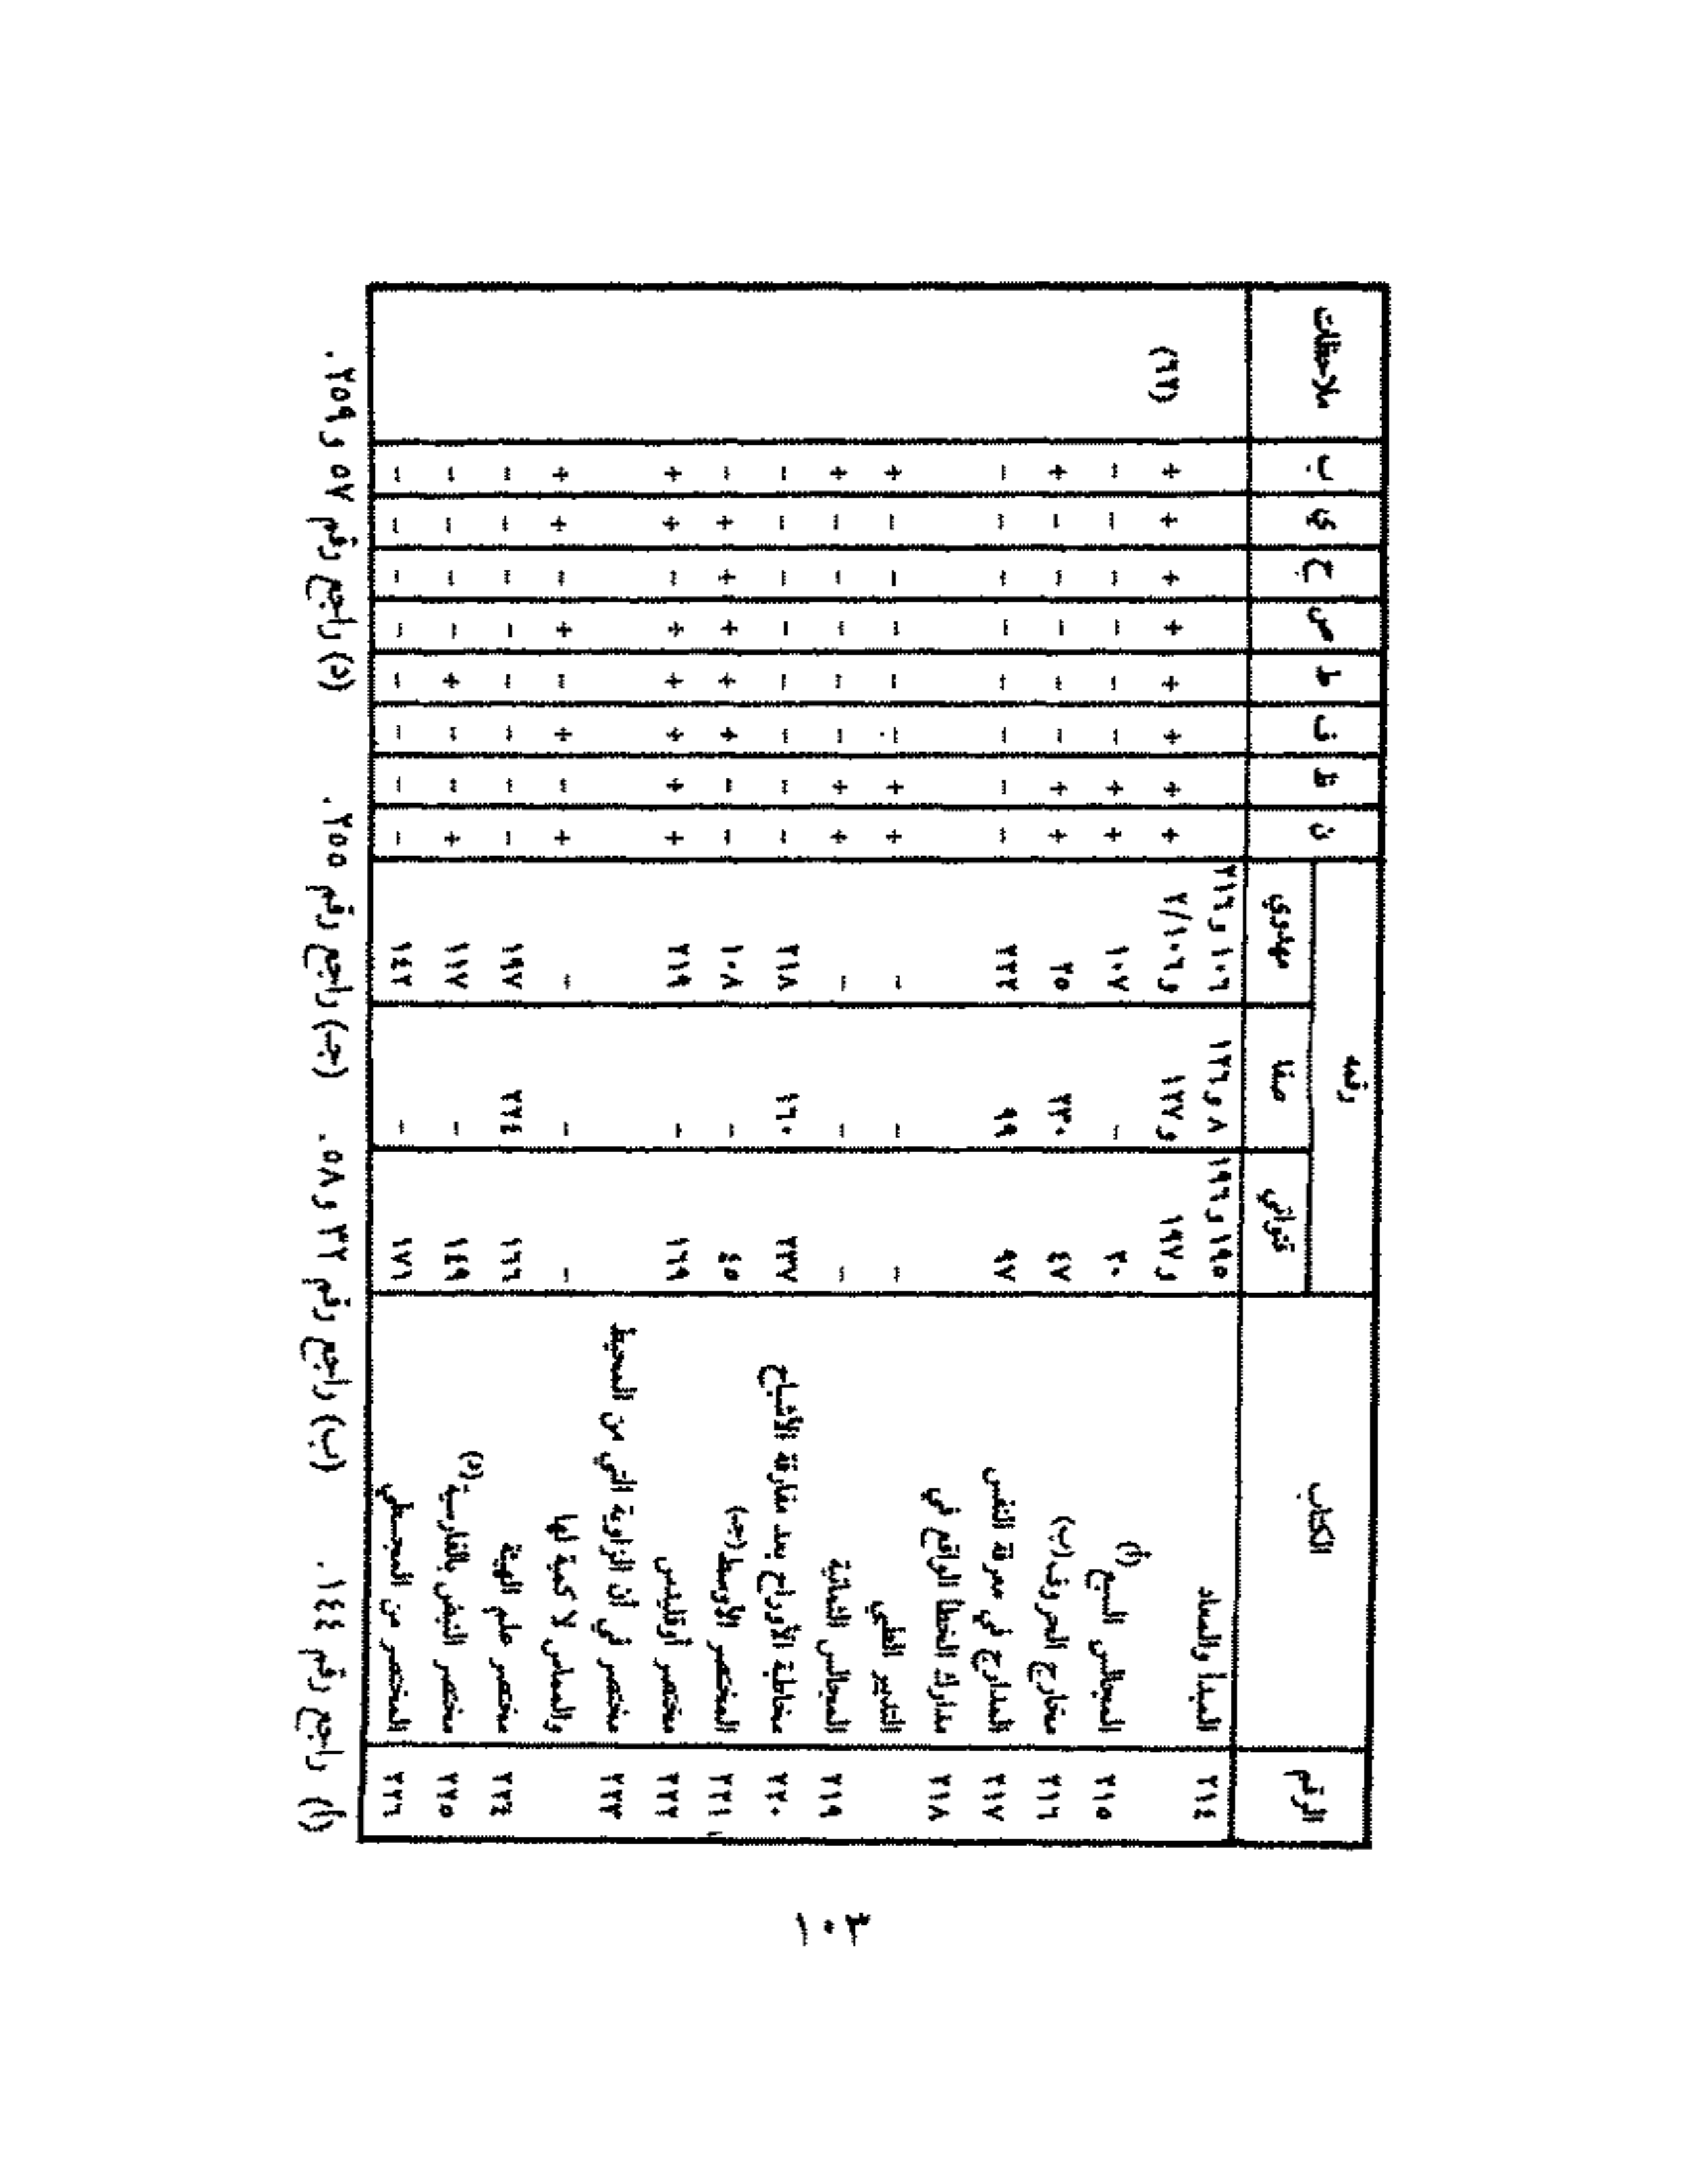 رقمه
الرقم الكتاب قنواتي صفا مهدوي ن ظ ف ط ص خ ي ب ملاحظات
٢١٤ المبدأ والمعاد ١٩٥ و ١٩٦ ٨ و ١٢٦ ١٠٦ و ٢١٦
و ١٩٧ و ١٢٧ و ١٠٦/٢ + + + + + + + + (٦٢)
٢١٥ المجالس السبع (أ) ٣٠ – ١٠٧ + + – – – – – –
٢١٦ مخارج الحروف (ب) ٤٧ ٢٣٠ ٢٥ + + – – – – – +
٢١٧ المدارج في معرفة النفس ٩٧ ٩٩ ٢٢٢ – – – – – – – –
٢١٨ مدارك الخطأ الواقع في
التدبير الطبي – – – + + – – – – – +
٢١٩ المجالس الثمانية – – – + + – – – – – +
٢٢٠ مخاطبة الأرواح بعد مفارقة الأشباح ٢٣٧ ١٦٠ ٢١٨ – – – – – – – –
٢٢١ المختصر الأوسط (ج) ٤٥ – ١٠٨ – – + + + + + –
٢٢٢ مختصر أوقليدس ١٦٩ – ٢١٩ + + + + + – + +
٢٢٣ مختصر في أن الزاوية التي من المحيط
والمماس لا كمية لها – – – + – + – + – + +
٢٢٤ مختصر علم الهيئة ١٦٦ ٢٢٤ ١٩٧ – – – – – – – –
٢٢٥ مختصر النبض بالفارسية (د) ١٤٩ – ١١٧ + – – + – – – –
٢٢٦ المختصر من المجسطي ١٧١ – ١٤٢ – – – – – – – –
(أ) راجع رقم ١٤٤ . (ب) راجع رقم ٣٢ و ٨٥ . (ج) راجع رقم ٢٥٥ . (د) راجع رقم ٥٧ و ٢٥٩ .
١٠٣